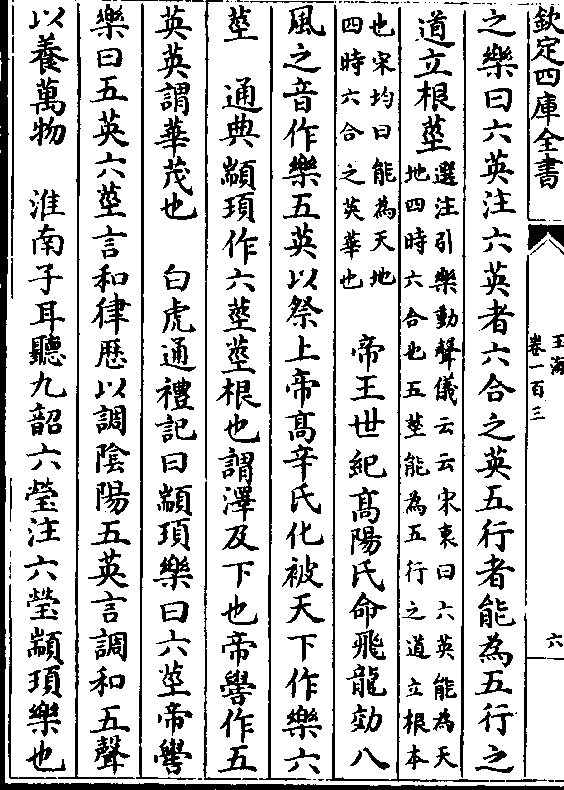 欽定四庫全書
玉海
卷一百三
六
之樂曰六英注六英者六合之英五行者能為五行之
道立根莖
選注引樂動聲儀云云宋衷曰六英能為天
地四時六合也五莖能為五行之道立根本
也宋均曰能為天地
四時六合之英華也
帝王世紀高陽氏命飛龍効八
風之音作樂五英以祭上帝高辛氏化被天下作樂六
莖　通典顓頊作六莖莖根也謂澤及下也帝嚳作五
英英謂華茂也　白虎通禮記曰顓頊樂曰六莖帝嚳
樂曰五英六莖言和律歷以調陰陽五英言調和五聲
以養萬物　淮南子耳聽九韶六瑩注六瑩顓頊樂也